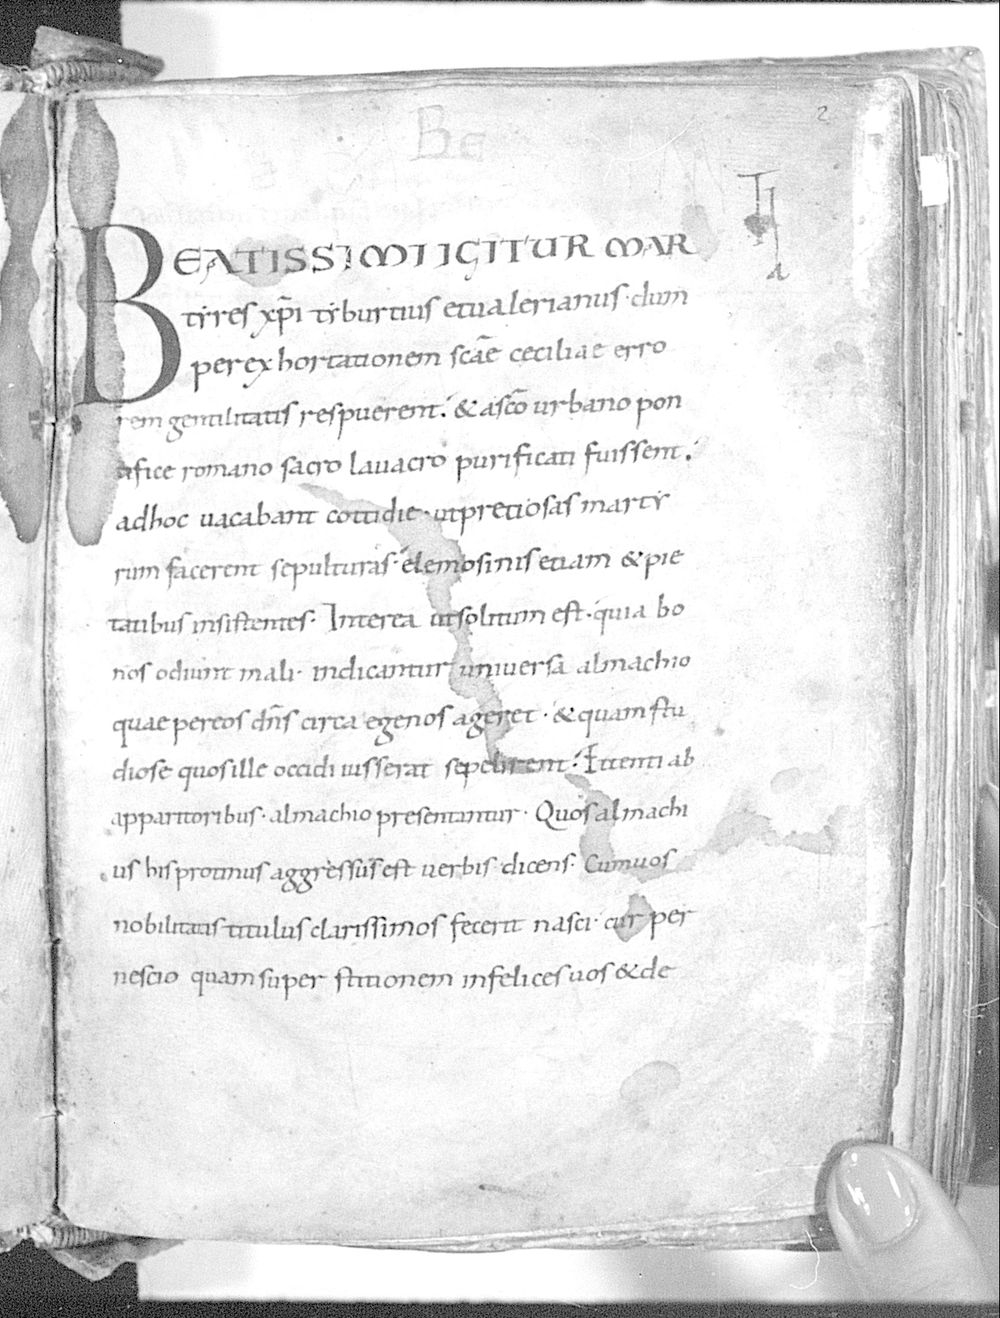 2
Be
BEATISSIMI IGITUR MAR
tyres xp̄i tyburtius et ualerianus · dum
per exhortationem scāe ceciliae erro
rem gentilitatis respuerent · & a sc̄o urbano pon
tifice romano sacro lauacro purificati fuissent ·
ad hoc uacabant cottidie · ut pretiosas marty
rum facerent sepulturas · elemosinis etiam & pie
tatibus insistentes · Interea ut solitum est · quia bo
nos odiunt mali · indicantur uniuersa almachio
quae per eos dn̄s circa egenos ageret · & quam stu
diose quos ille occidi iusserat sepelirent · Itenti ab
apparitoribus · almachio presentantur · Quos almachi
us his protinus aggressus est uerbis dicens · Cum uos
nobilitatis titulus clarissimos fecerit nasci · cur per
nescio quam superstitionem infelices uos & de